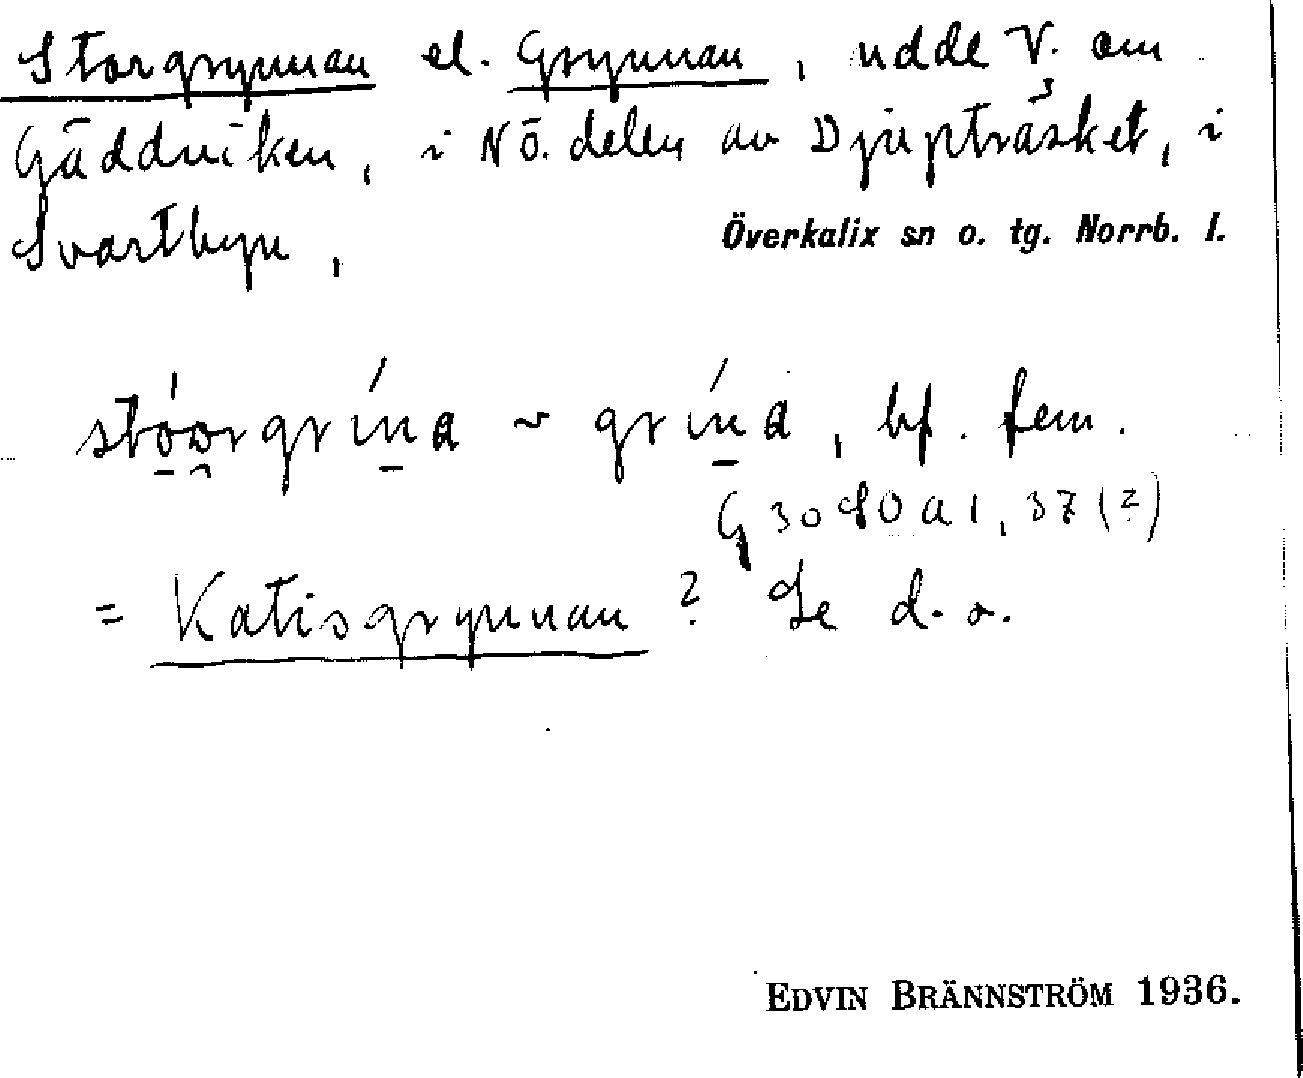 Storgrynnan el. Grynnan, udde V. om
Gäddviken, i NÖ. delen av Djupträsket, i
Svartbyn,
Överkalix sn o. tg. Norrb. l.
stóorgrína ~ grína, bf. fem.
G 3080 a 1, 37 (2)
= Katisgrynnan? Se d. o.
EDVIN BRÄNNSTRÖM 1936.